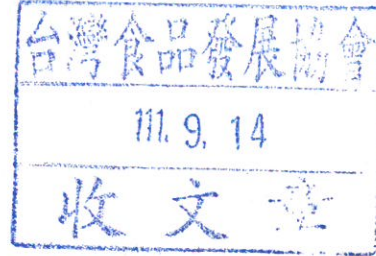 台灣食品發展協會
111. 9. 14
收文章